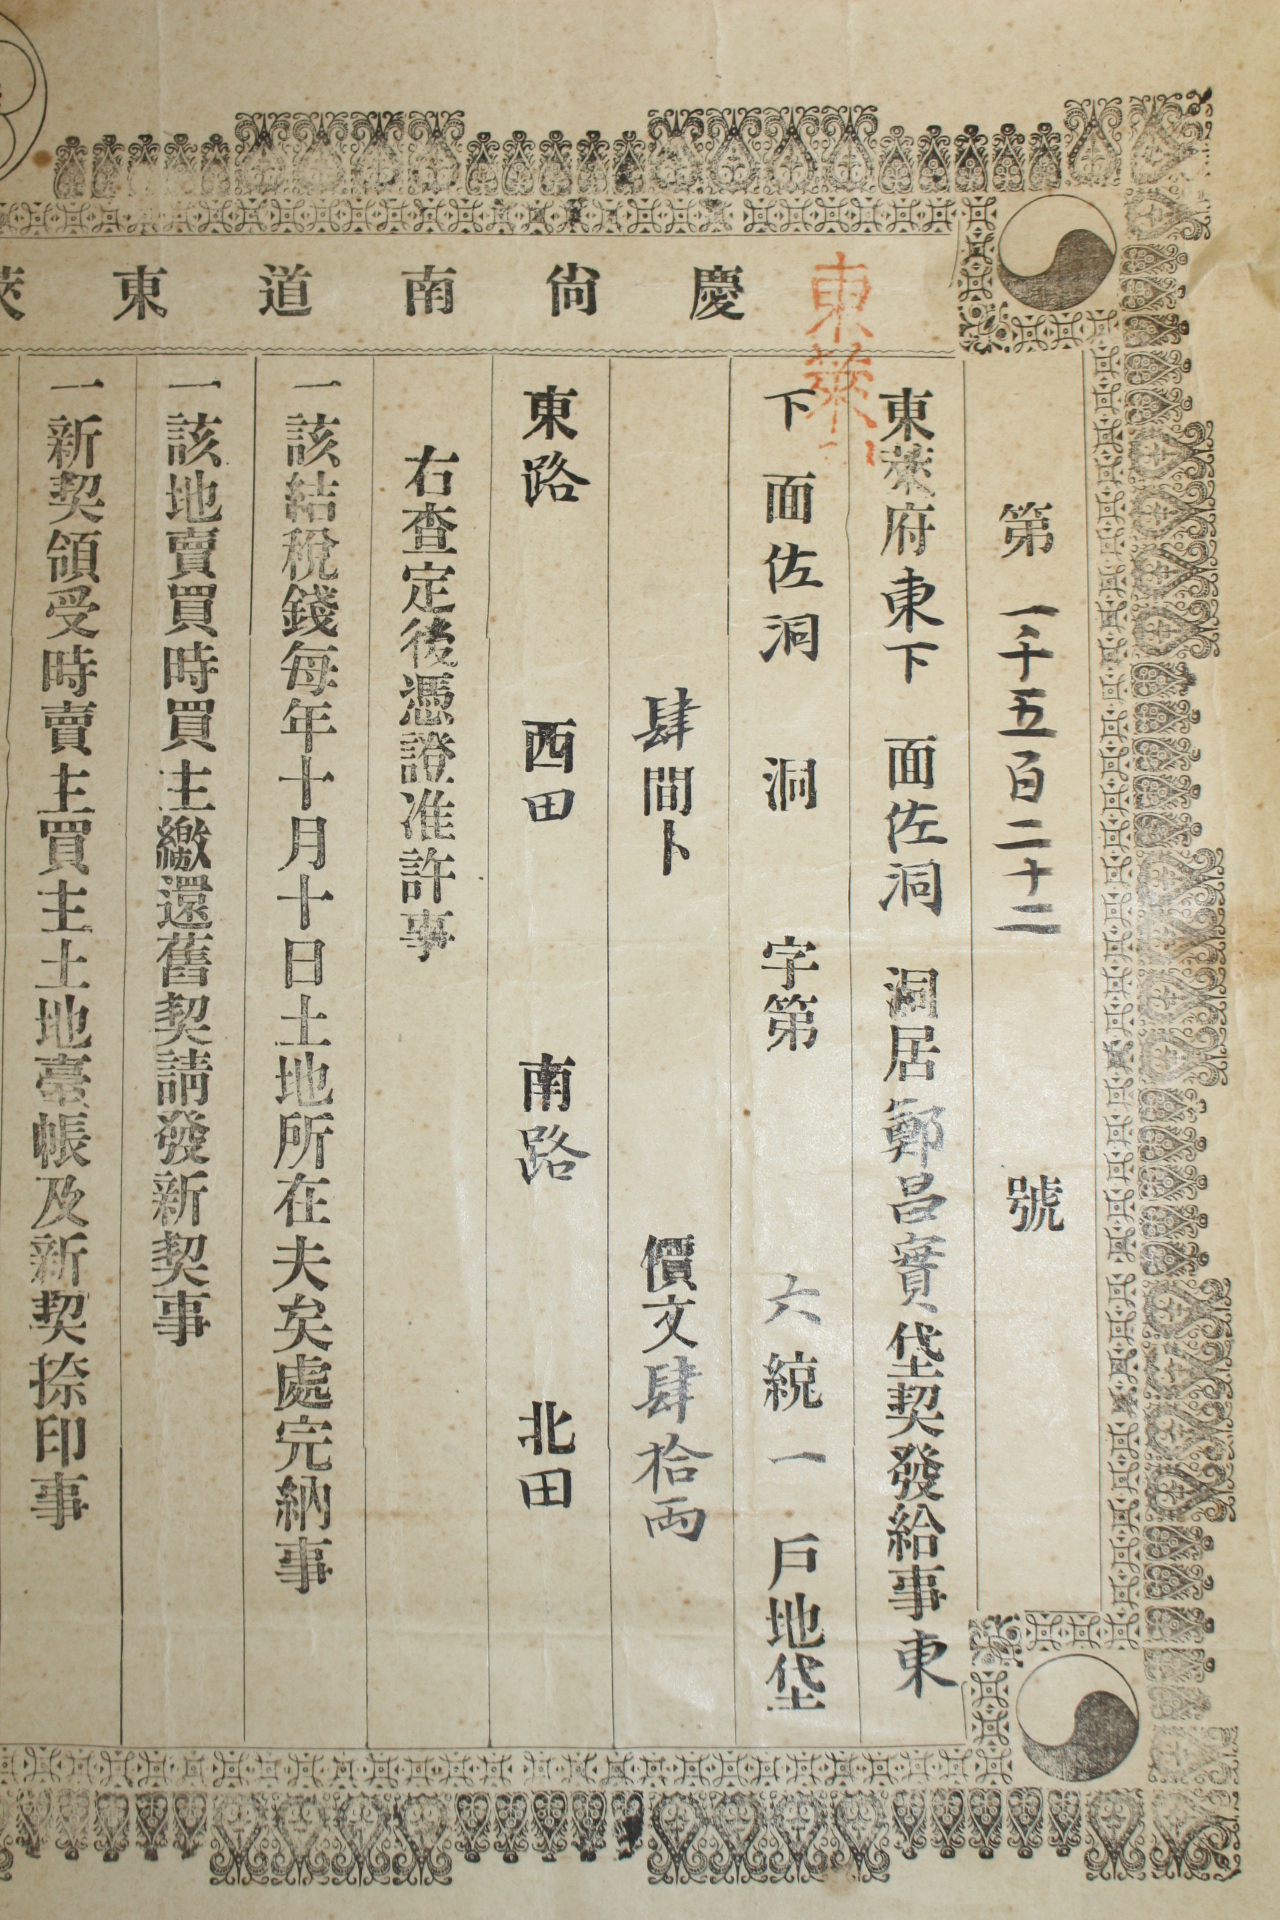 慶尙南道東萊
東萊
第一千五百二十二號
東萊府東下面佐洞洞居鄭昌實垈契發給事東
下面佐洞洞字第六統一戶地垈
肆間卜價文肆拾兩
東路西田南路北田
右査定後憑證准許事
一該結稅錢每年十月十日土地所在夫矣處完納事
一該地賣買時買主繳還舊契請發新契事
一新契領受時賣主買主土地臺帳及新契捺印事